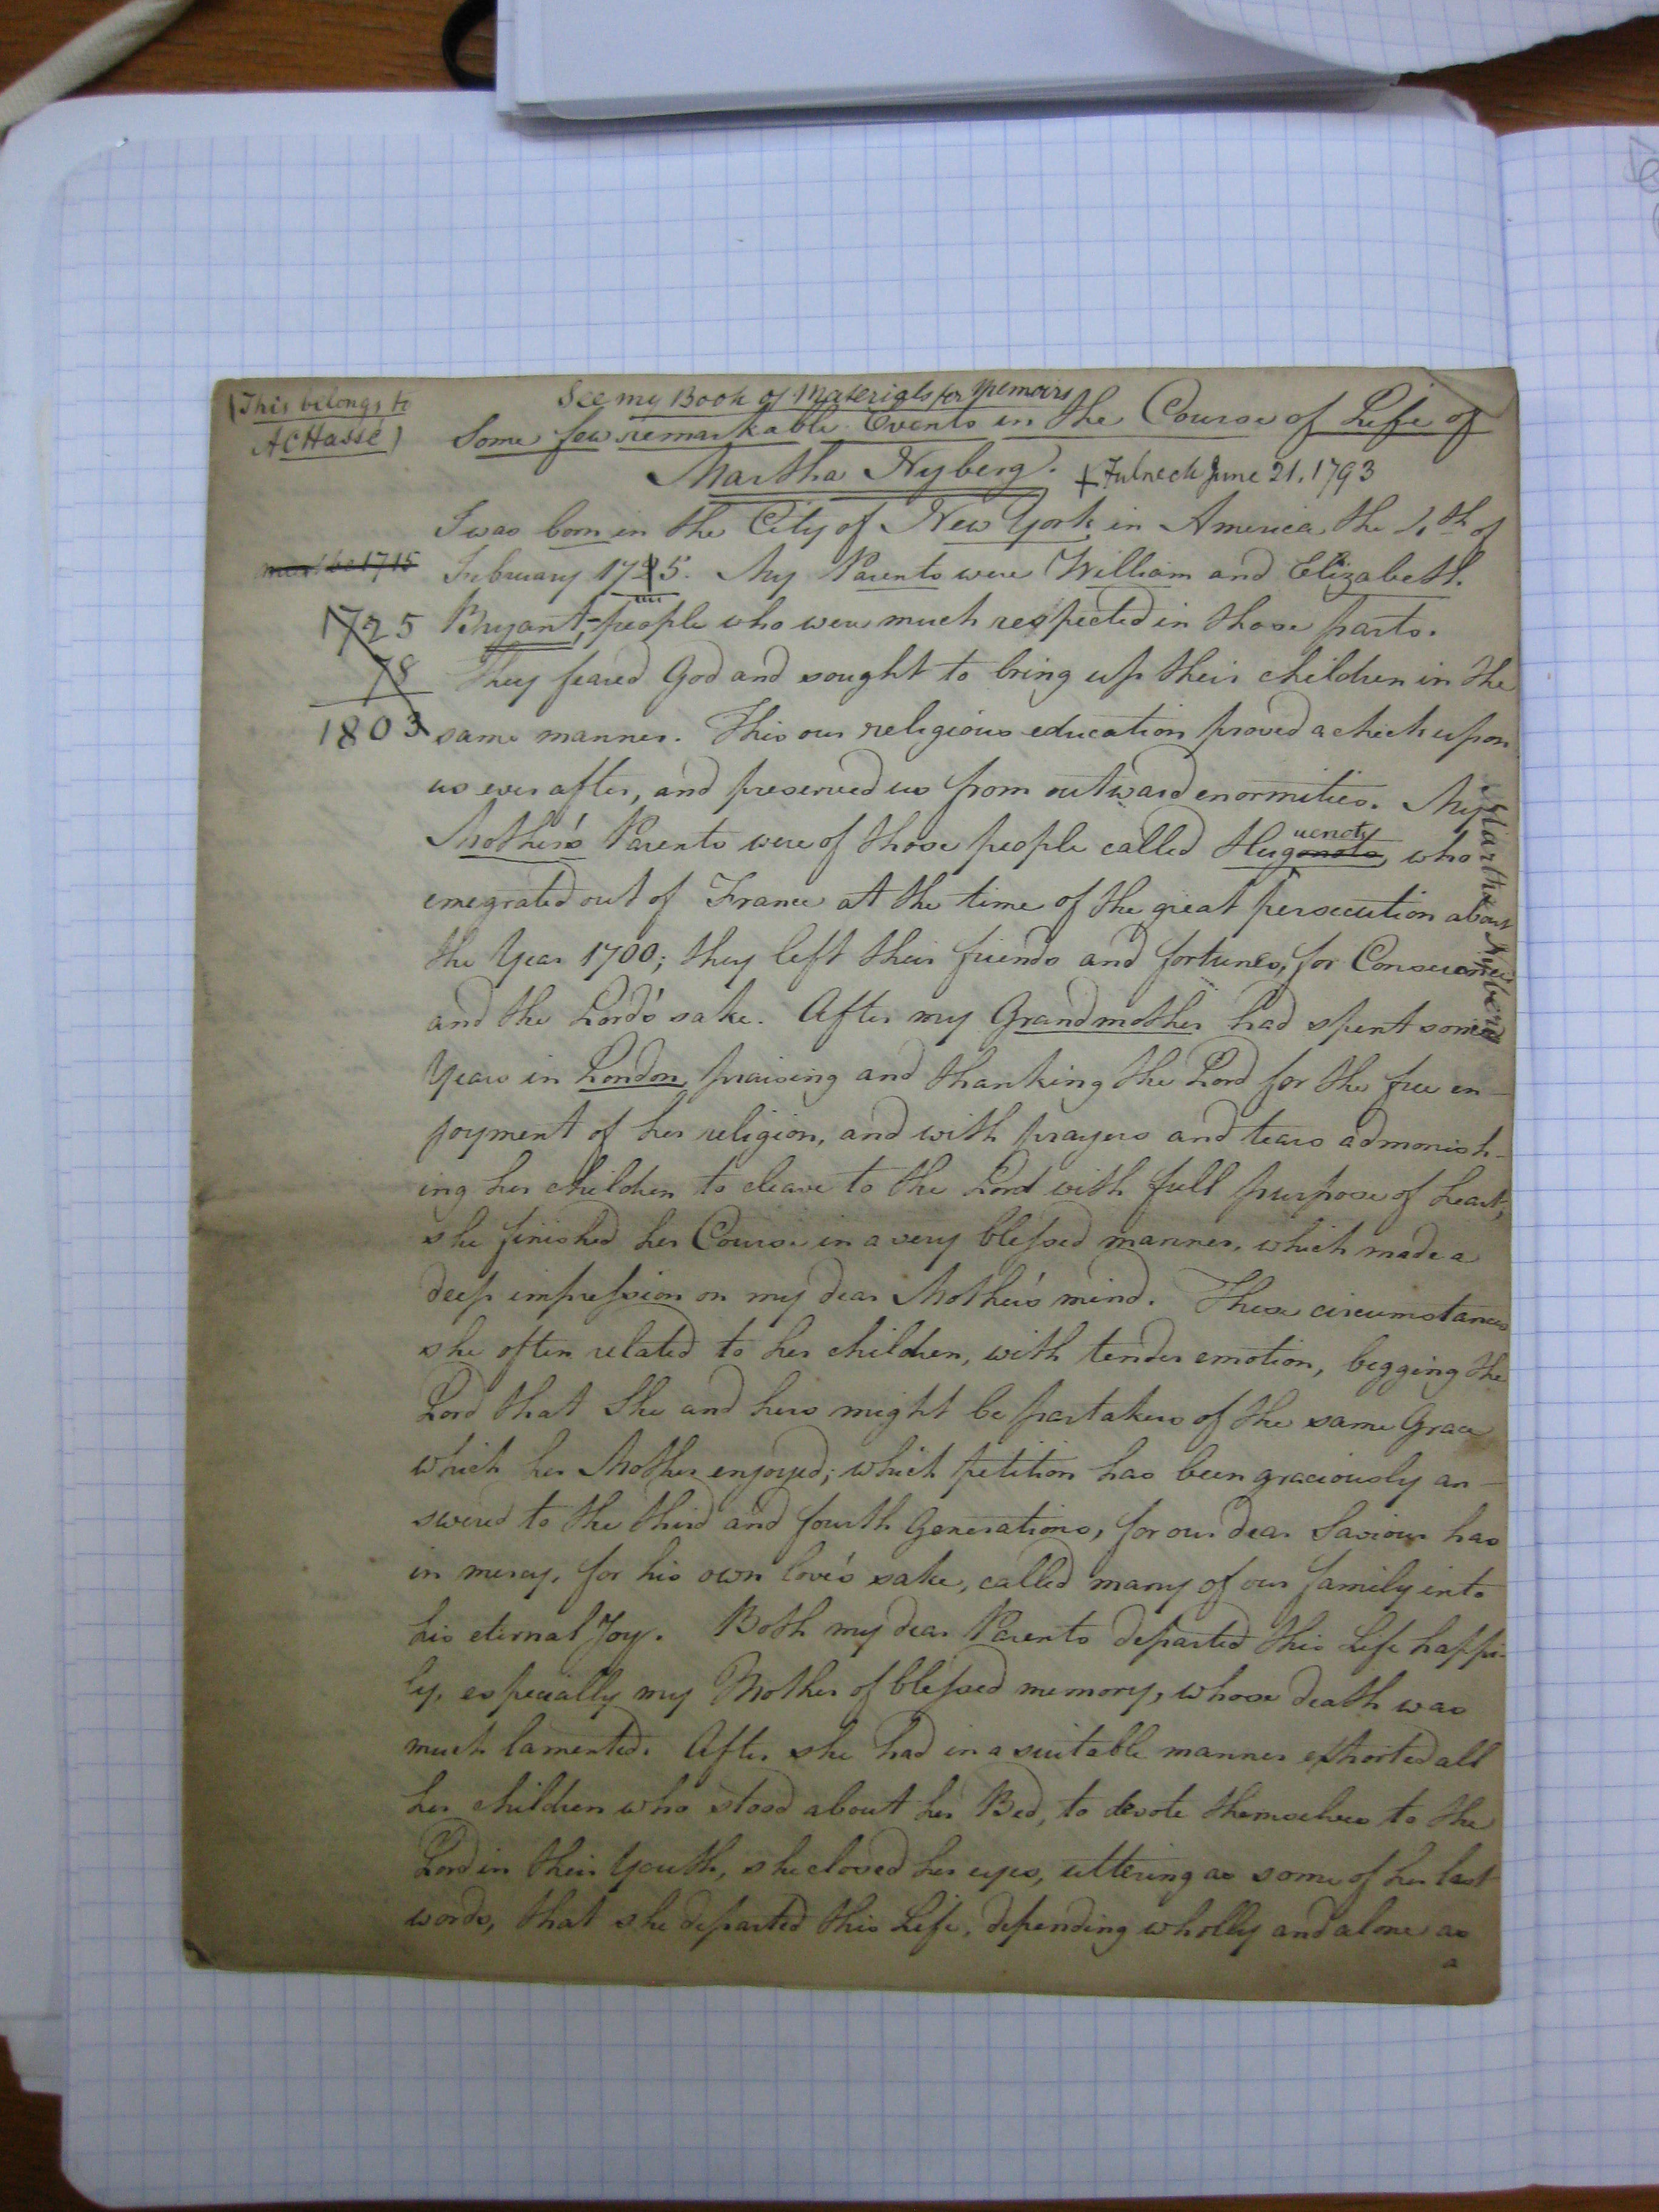 (This belongs to
AC Hassé)
See my Book of Materials for Memoirs
Some few remarkable Events in the Course of Life of
Martha Nyberg. † Fulneck June 21. 1793
I was born in the City of New York in America the th of
must be 1715
February 1715. My Parents were William and Elizabeth
1725
78
1803
Bryant, people who were much respected in those parts.
They feared God and sought to bring up their children in the
same manner. This our religious education proved a check upon
us ever after, and preserved us from outward enormities. My
Mother's Parents were of those people called Hugonots uenots, who
emegrated out of France at the time of the great persecution about
the Year 1700; they left their friends and fortunes, for Conscience
and the Lord's sake. After my Grandmother had spent some
Years in London, praising and thanking the Lord for the free en-
joyment of her religion, and with prayers and tears admonish-
ing her children to cleave to the Lord with full purpose of heart;
she finished her Course in a very blessed manner, which made a
deep impression on my dear Mother's mind. These circumstances
she often related to her children, with tender emotion, begging the
Lord that She and hers might be partakers of the same Grace
which her Mother enjoyed; which petition has been graciously an-
swered to the third and fourth Generations, for our dear Saviour has
in mercy, for his own love's sake, called many of our family into
his eternal Joy. Both my dear Parents departed this Life happi-
ly, especially my Mother of blessed memory, whose death was
much lamented. After she had in a suitable manner exhorted all
her children who stood about her Bed, to devote themselves to the
Lord in their Youth, she closed her eyes, uttering as some of her last
words, that she departed this Life, depending wholly and alone as
a
Martha Nyberg